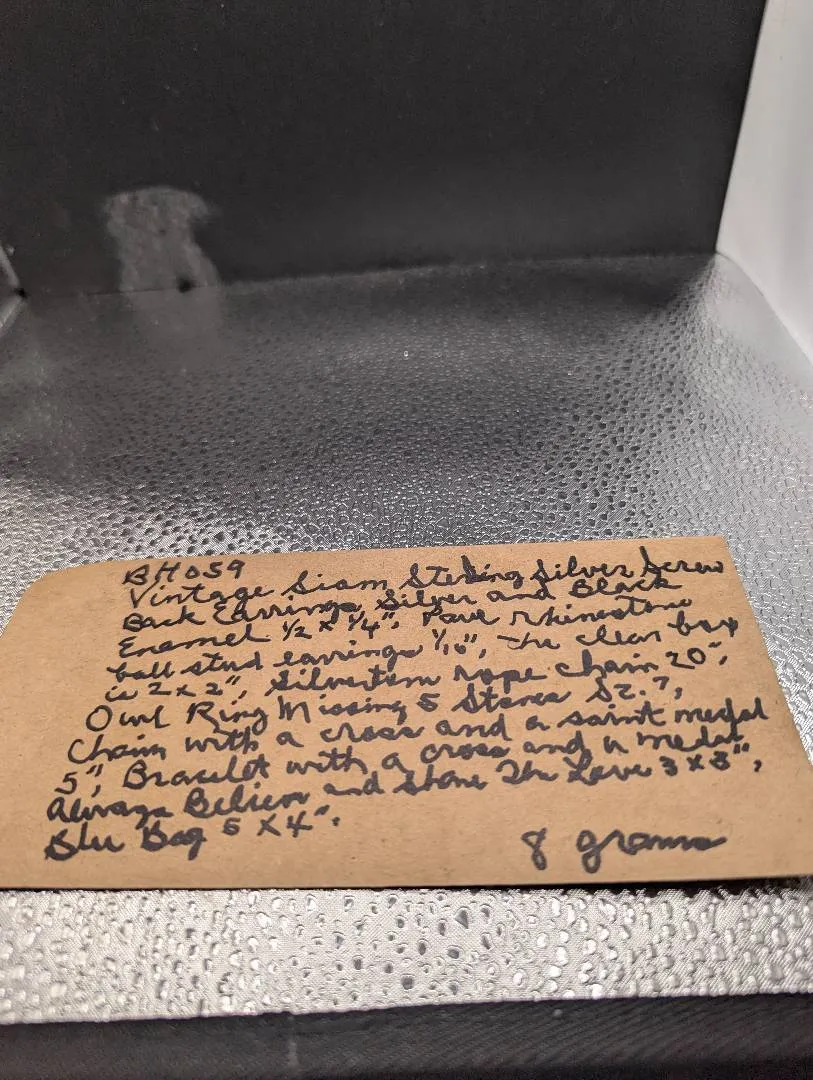 BH059
Vintage Siam Sterling Silver Screw
Back Earrings, Silver and Black
Enamel 1/2 x 1/4", Pave rhinestone
ball stud earrings 1/16", the clear box
is 2 x 2", Silvertone rope chain 20",
Owl Ring Missing 5 Stones Sz. 7,
Chain with a cross and a saint medal
5", Bracelet with a cross and a medal
Always Believe and Share The Love 3 x 3",
Blue Bag 5 x 4".
8 grams